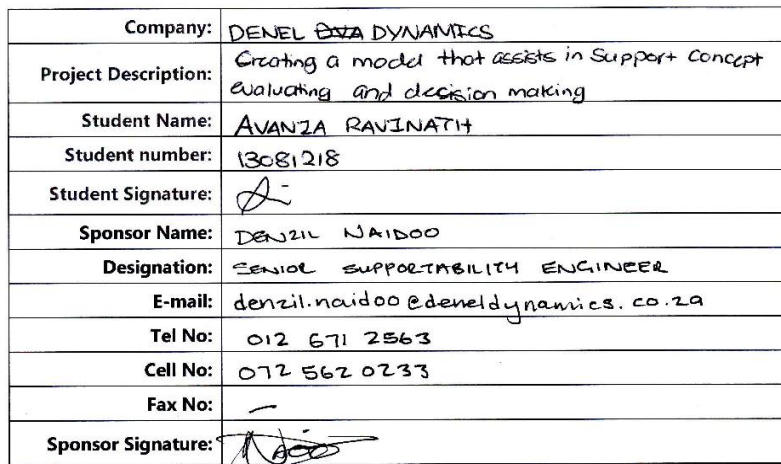 Company: DENEL DYNAMICS
Project Description: Creating a model that assists in Support Concept
evaluating and decision making
Student Name: AVANIA RAVINATH
Student number: 13081218
Student Signature:
Sponsor Name: DENZIL NAIDOO
Designation: SENIOR SUPPORTABILITY ENGINEER
E-mail: denzil.naidoo@deneldynamics.co.za
Tel No: 012 671 2563
Cell No: 072 562 0233
Fax No: —
Sponsor Signature: Naidoo